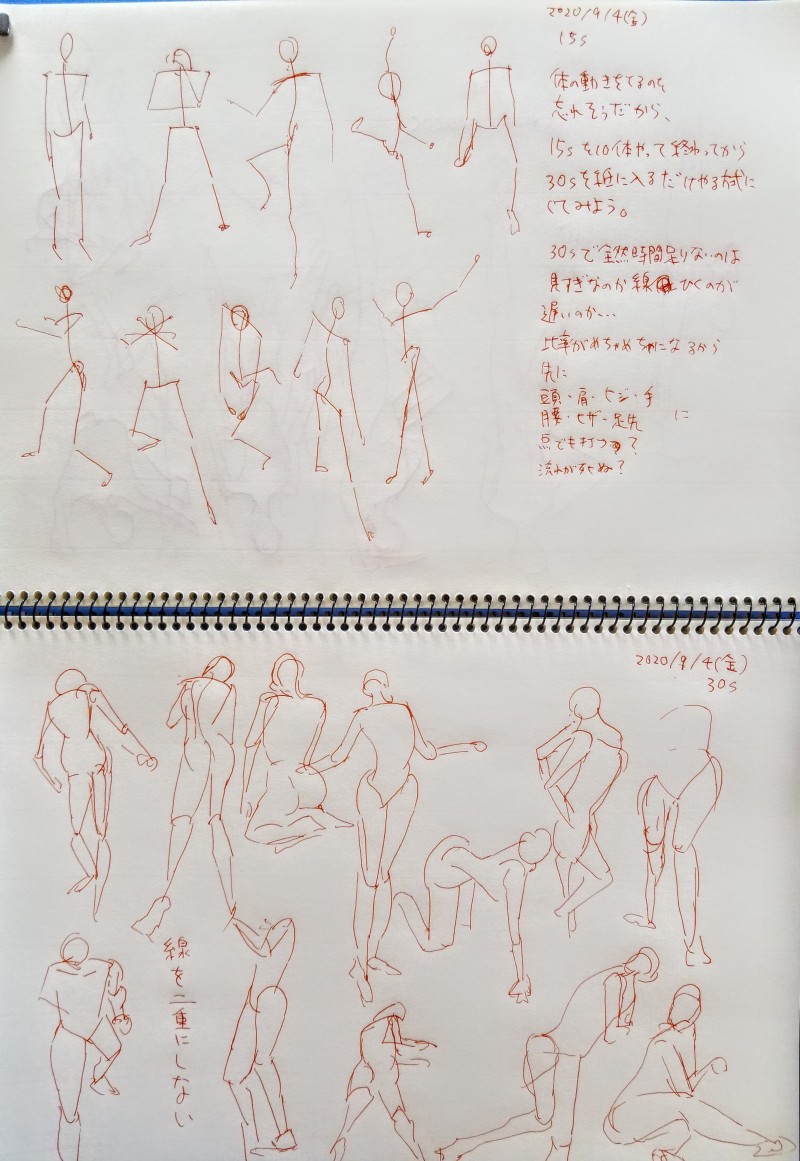 2020/9/4(金)
15s
体の動きをてるのを
忘れそうだから、
15sを10体やって終わってから
30sを紙に入るだけやる方式に
してみよう。
30sで全然時間足りないのは
見すぎなのか線ひくのが
遅いのか…
比率がめちゃめちゃになるから
先に
頭・肩・ヒジ・手
腰・ヒザ・足先 に
点でも打つ?
流れが死ぬ?
2020/9/4(金)
30s
線を二重にしない